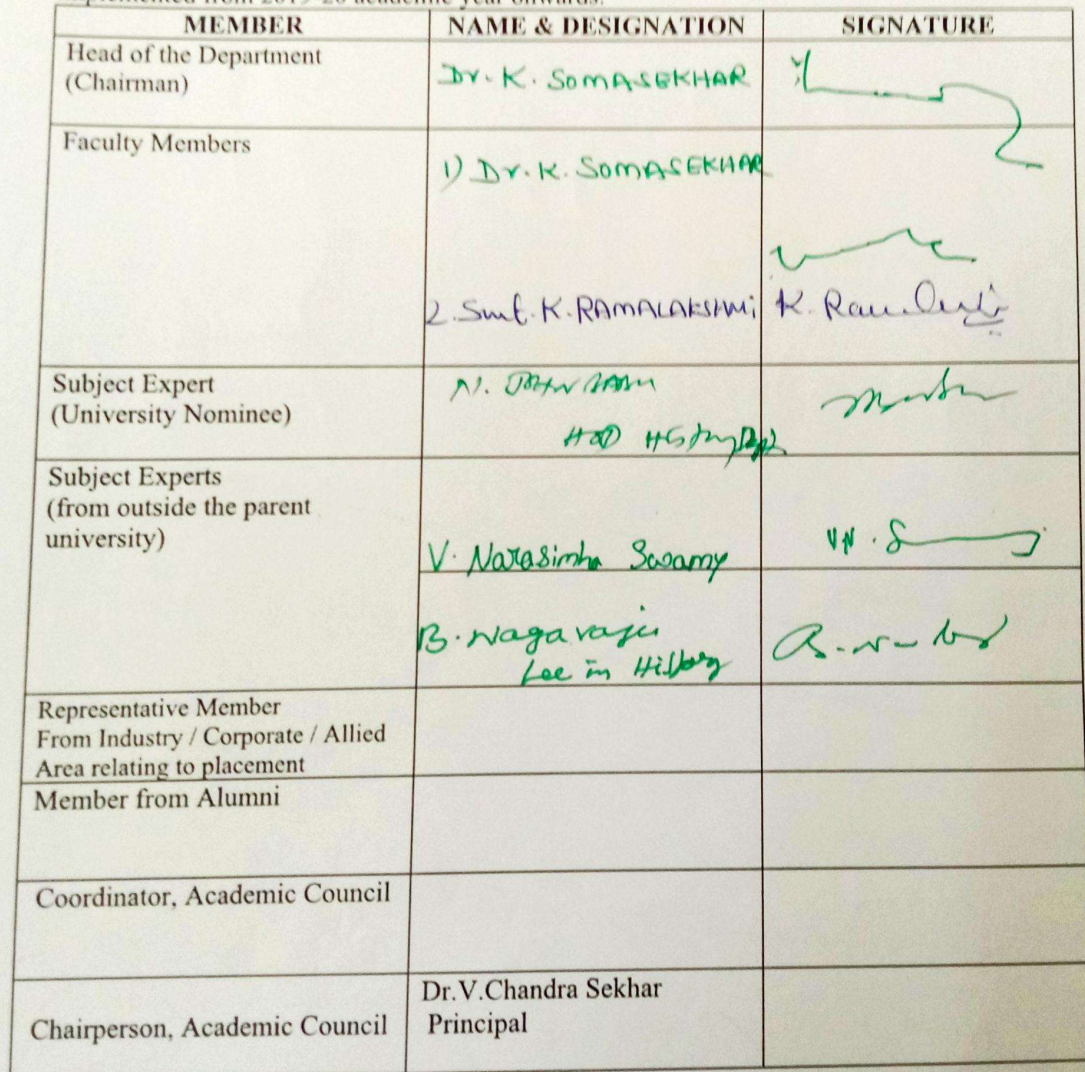 2019-20 academic year onwards.
MEMBER NAME & DESIGNATION SIGNATURE
Head of the Department
(Chairman)
Dr. K. SOMASEKHAR
Faculty Members
1) Dr. K. SOMASEKHAR
2. Smt. K. RAMALAKSHMI K.
Subject Expert
(University Nominee)
N.
HOD History Dept
Subject Experts
(from outside the parent
university)
V. Narasimha Swamy V.N. S
B. Nagaraju
Lec in History
Representative Member
From Industry / Corporate / Allied
Area relating to placement
Member from Alumni
Coordinator, Academic Council
Dr.V.Chandra Sekhar
Chairperson, Academic Council Principal